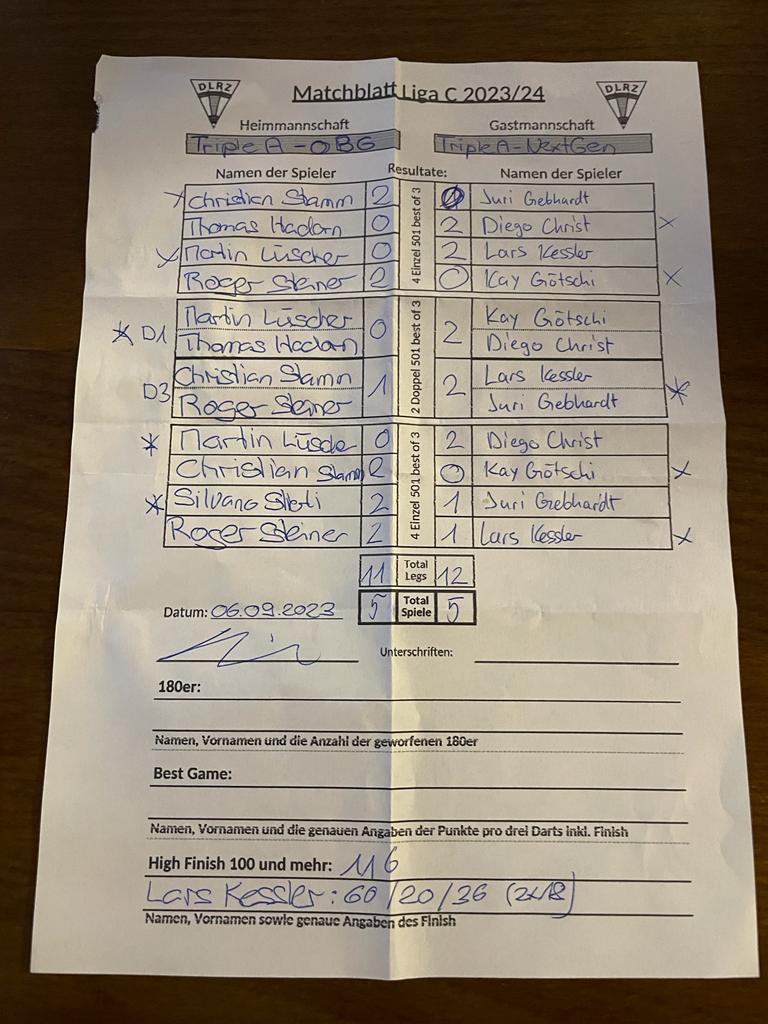 DLRZ Matchblatt Liga C 2023/24 DLRZ
Heimmannschaft Gastmannschaft
Triple A - OBG Triple A - NextGen
Namen der Spieler Resultate: Namen der Spieler
4 Einzel 501 best of 3
x Christian Stamm 2 Juri Gebhardt
Thomas Hadorn 0 2 Diego Christ x
x Martin Lüscher 0 2 Lars Kessler
Roger Steiner 2 0 Kay Götschi x
2 Doppel 501 best of 3
Martin Lüscher Kay Götschi
* D1 0 2
Thomas Hadorn Diego Christ
Christian Stamm Lars Kessler
D3 1 2 *
Roger Steiner Juri Gebhardt
4 Einzel 501 best of 3
* Martin Lüscher 0 2 Diego Christ
Christian Stamm 2 0 Kay Götschi x
* Silvano 2 1 Juri Gebhardt
Roger Steiner 2 1 Lars Kessler x
11 Total Legs 12
Datum: 06.09.2023 5 Total Spiele 5
Unterschriften:
180er:
Namen, Vornamen und die Anzahl der geworfenen 180er
Best Game:
Namen, Vornamen und die genauen Angaben der Punkte pro drei Darts inkl. Finish
High Finish 100 und mehr: 116
Lars Kessler: 60/20/36 (2x18)
Namen, Vornamen sowie genaue Angaben des Finish